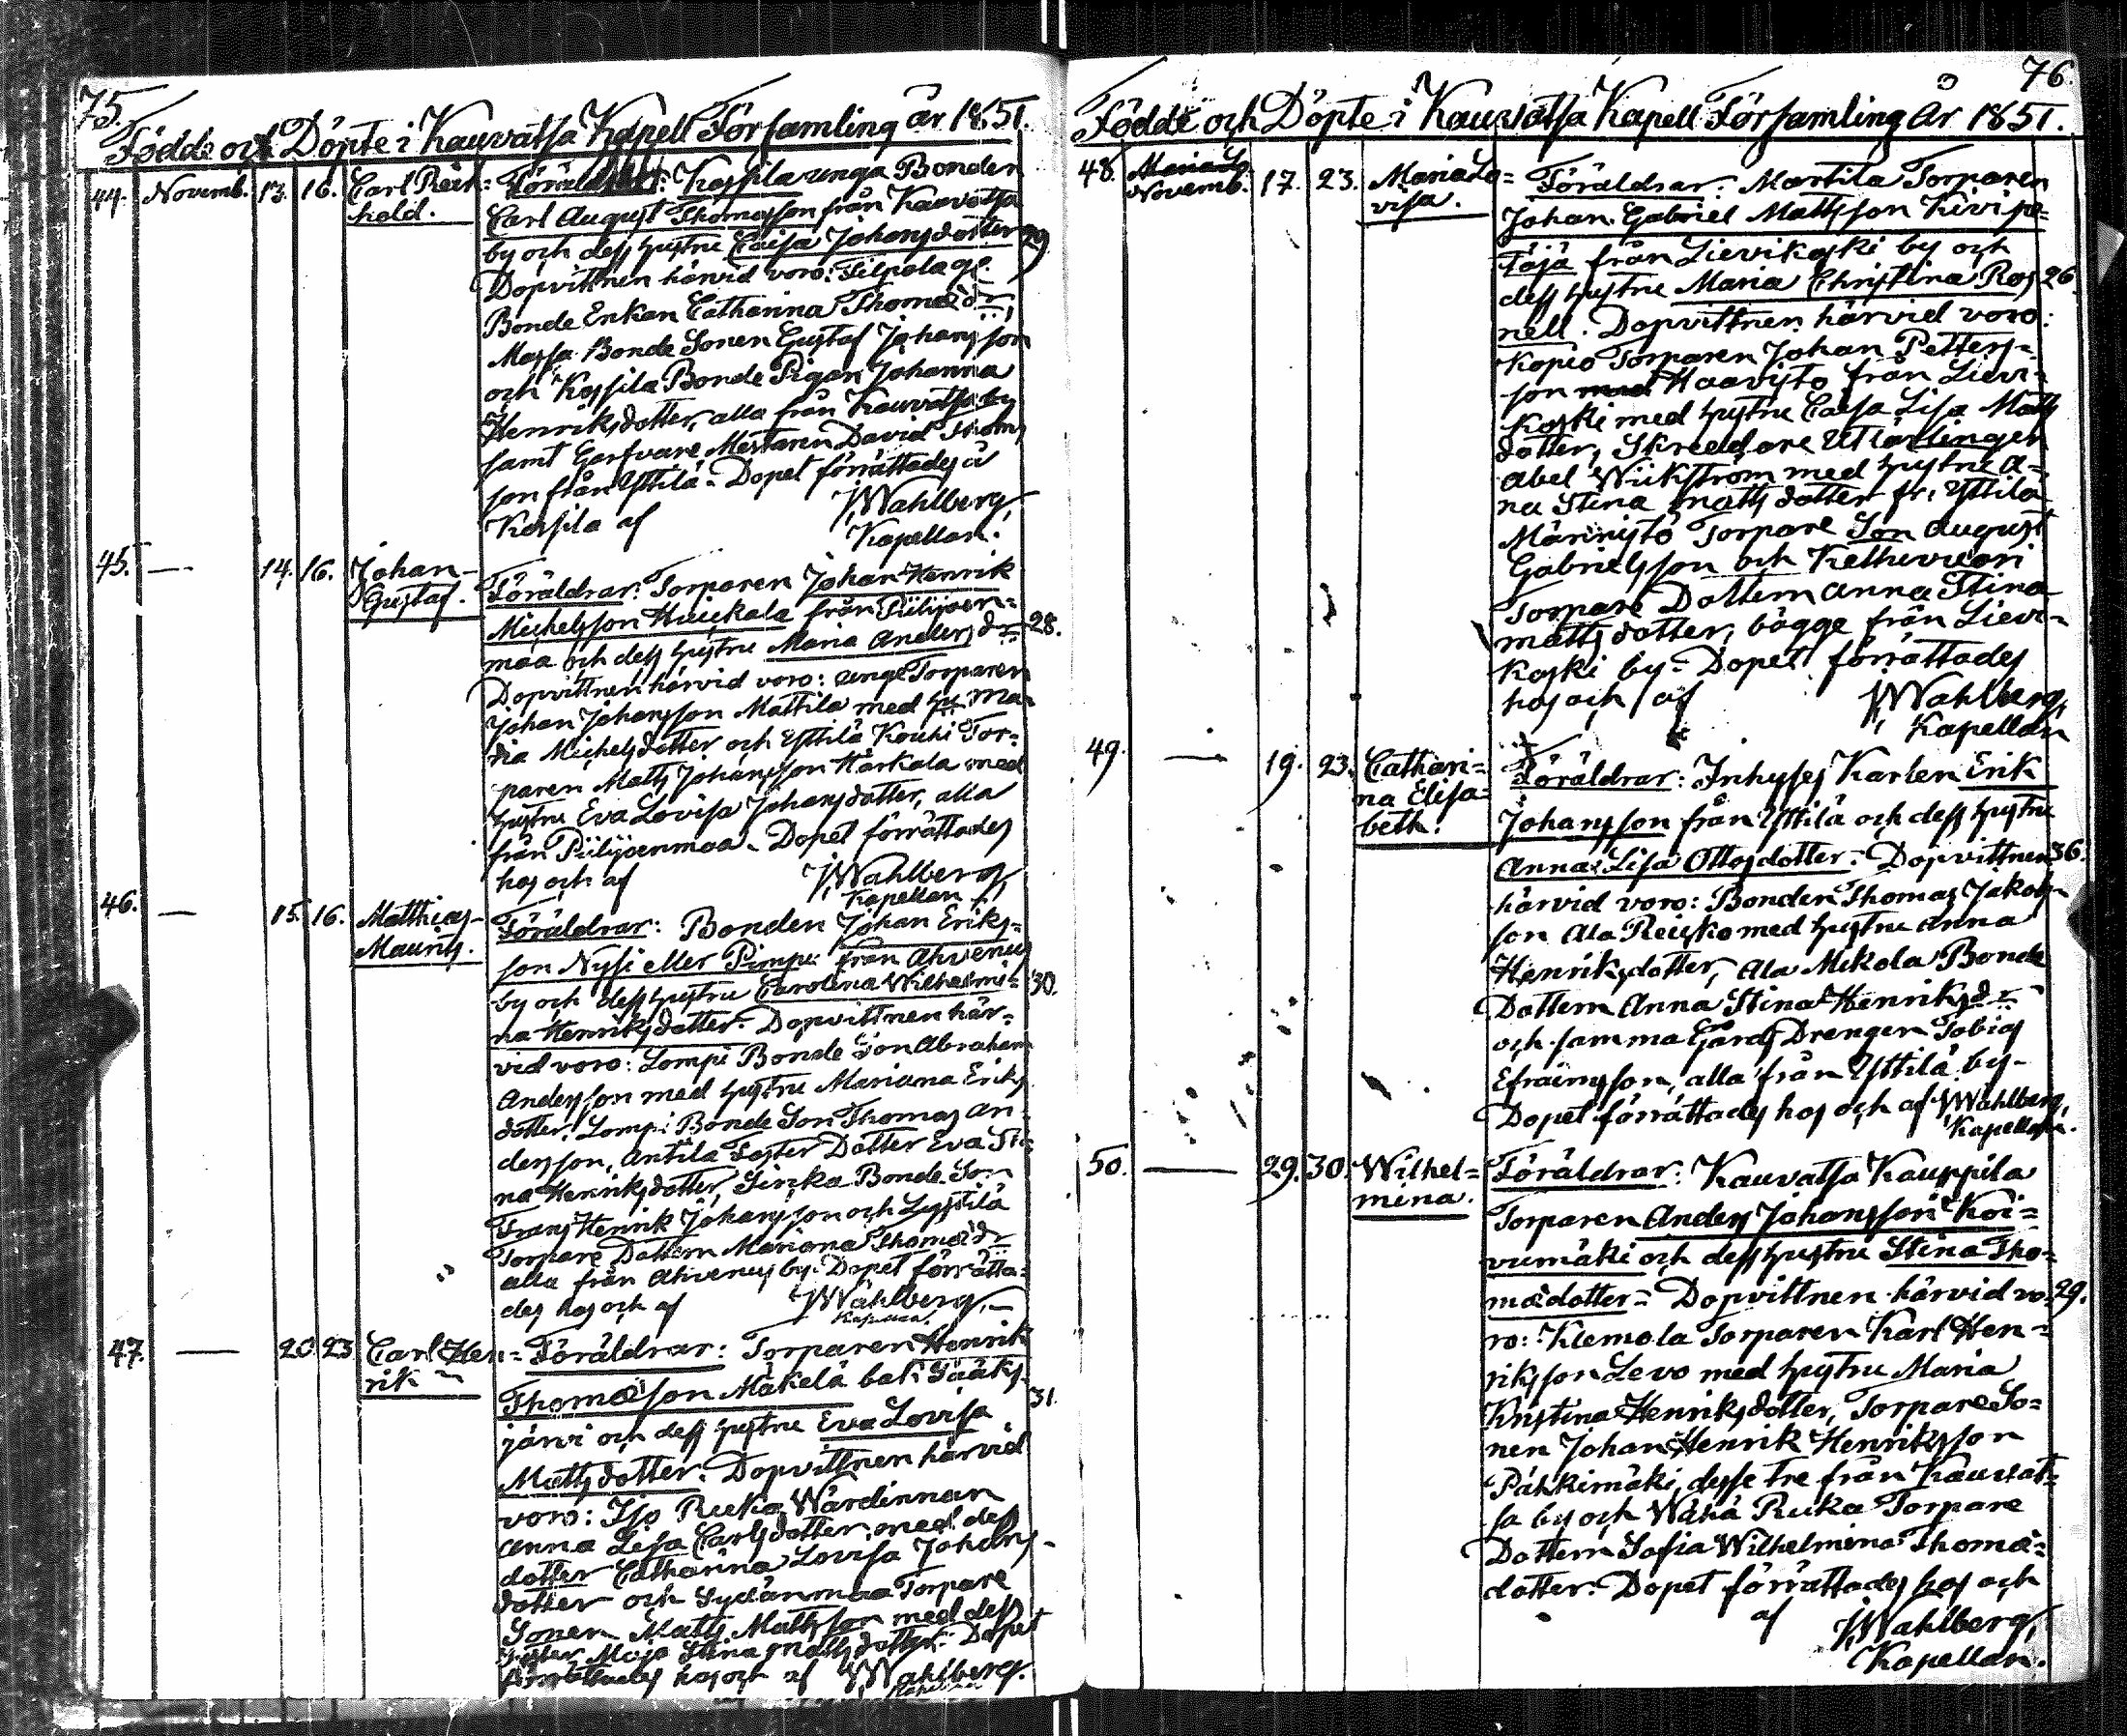 75.
Födde och Döpte i Kauvatsa Kapell Församling år 1851.
44. Novemb. 13. 16. Carl Rein= Föräldrar: Kossila unga Bonden
hold. Carl August Thomasson från Kauvatsa
by och dess hustru Caisa Johansdotter 29
Dopvittnen härvid voro: Filpola ge.
Bonde Enkan Catharina Thomædr,
Massa Bonde Sonen Gustaf Johansson
och Kossila Bonde Pigan Johanna
Henriksdotter, alla från Kauvatsa by
samt Garfvare Mestaren David Thoms
son från Yttilä. Dopet förrättades å
Kossila af JWahlberg,
Kapellan.
45. — 14. 16. Johan Föräldrar: Torparen Johan Henrik
Gustaf. Michelsson Huckala från Piilijoen=
maa och dess hustru Maria Andersdr 28.
Dopvittnen härvid voro: unge Torparen
Johan Johansson Mattila med hu: Ma
ria Michelsdotter och Yttilä Kouhi Tor=
paren Matts Johansson Harkala med
hustru Eva Lovisa Johansdotter, alla
från Piilijoenmaa. Dopet förrättades
hos och af JWahlberg,
Kapellan
46. — 15. 16. Matthias Föräldrar: Bonden Johan Eriks=
Maurits. son Nysi eller Pimpe från Ahvenus
by och dess hustru Carolina Wilhelmi= 30.
na Henriksdotter. Dopvittnen här=
vid voro: Lompi Bonde Son Abraham
Andersson med hustru Mariana Eriks
dotter, Lompi Bonde Son Thomas An
dersson, Antila Foster Dotter Eva Sti
na Henriksdotter, Sirika Bonde Son
Frans Henrik Johansson och Lystilä
Torpare Dottern Mariana Thomædr
alla från Ahvenus by. Dopet förrätta=
des hos och af JWahlberg,
Kapellan.
47. — 20. 23. Carl Hen= Föräldrar: Torparen Henrik
rik Thomasson Mäkelä bak: Sääks= 31.
järvi och dess hustru Eva Lovisa
Mattsdotter. Dopvittnen härvid
voro: Iso Ruka Wärdinnan
Anna Lisa Carlsdotter med dess
dotter Catharina Lovisa Johans-
dotter och Sydänmaa Torpare
Sonen Matts Mattsson med dess
Syster Maja Stina Mattsdotter. Dopet
förrättades hos och af JWahlberg.
Kapellan
76.
Födde och Döpte i Kauvatsa Kapell Församling år 1851.
48. Novemb. 17. 23. Maria Lo= Föräldrar: Martila Torparen
visa. Johan Gabriel Mattsson Kivipe=
löjä från Lievikoski by och
dess hustru Maria Christina Ros 26.
nell. Dopvittnen härvid voro:
Kopio Torparen Johan Petters=
son Haavisto från Lievi=
koski med hustru Caisa Lisa Matts
dotter, Skreddare Utlärlingen
Abel Wikström med hustru A=
na Stina Mattsdotter fr: Yttilä
Männistö Torpare Son August
Gabrielsson och Kethuvuori
Torpare Dottern Anna Stina
Mattsdotter, bägge från Lievi=
koski by. Dopet förrättades
hos och af JWahlberg,
Kapellan
49. — 19. 23. Cathari= Föräldrar: Inhyses Karlen Erik
na Elisa= Johansson från Yttilä och dess hustru
beth. Anna Lisa Ottosdotter. Dopvittnen 36.
härvid voro: Bonden Thomas Jakobs
son Ala Reiska med hustru Anna
Henriksdotter, Ala Mikola Bonde
Dottern Anna Stina Henriksdr
och samma Gårds Drengen Tobias
Efraimsson, alla från Yttilä by.
Dopet förrättades hos och af JWahlberg,
Kapellan.
50. — 29. 30. Wilhel= Föräldrar: Kauvatsa Kauppila
mina. Torparen Anders Johansson Koi=
vumäki och dess hustru Stina Tho=
mædotter. Dopvittnen härvid vo= 29.
ro: Klemola Torparen Karl Hen=
riksson Levo med hustru Maria
Kristina Henriksdotter, Torpare So=
nen Johan Henrik Henriksson
Pähkimäki, desse tre från Kauvat=
sa by och Wähä Ruka Torpare
Dottern Sofia Wilhelmina Thomæ=
dotter. Dopet förrättades hos och
af JWahlberg,
Kapellan.